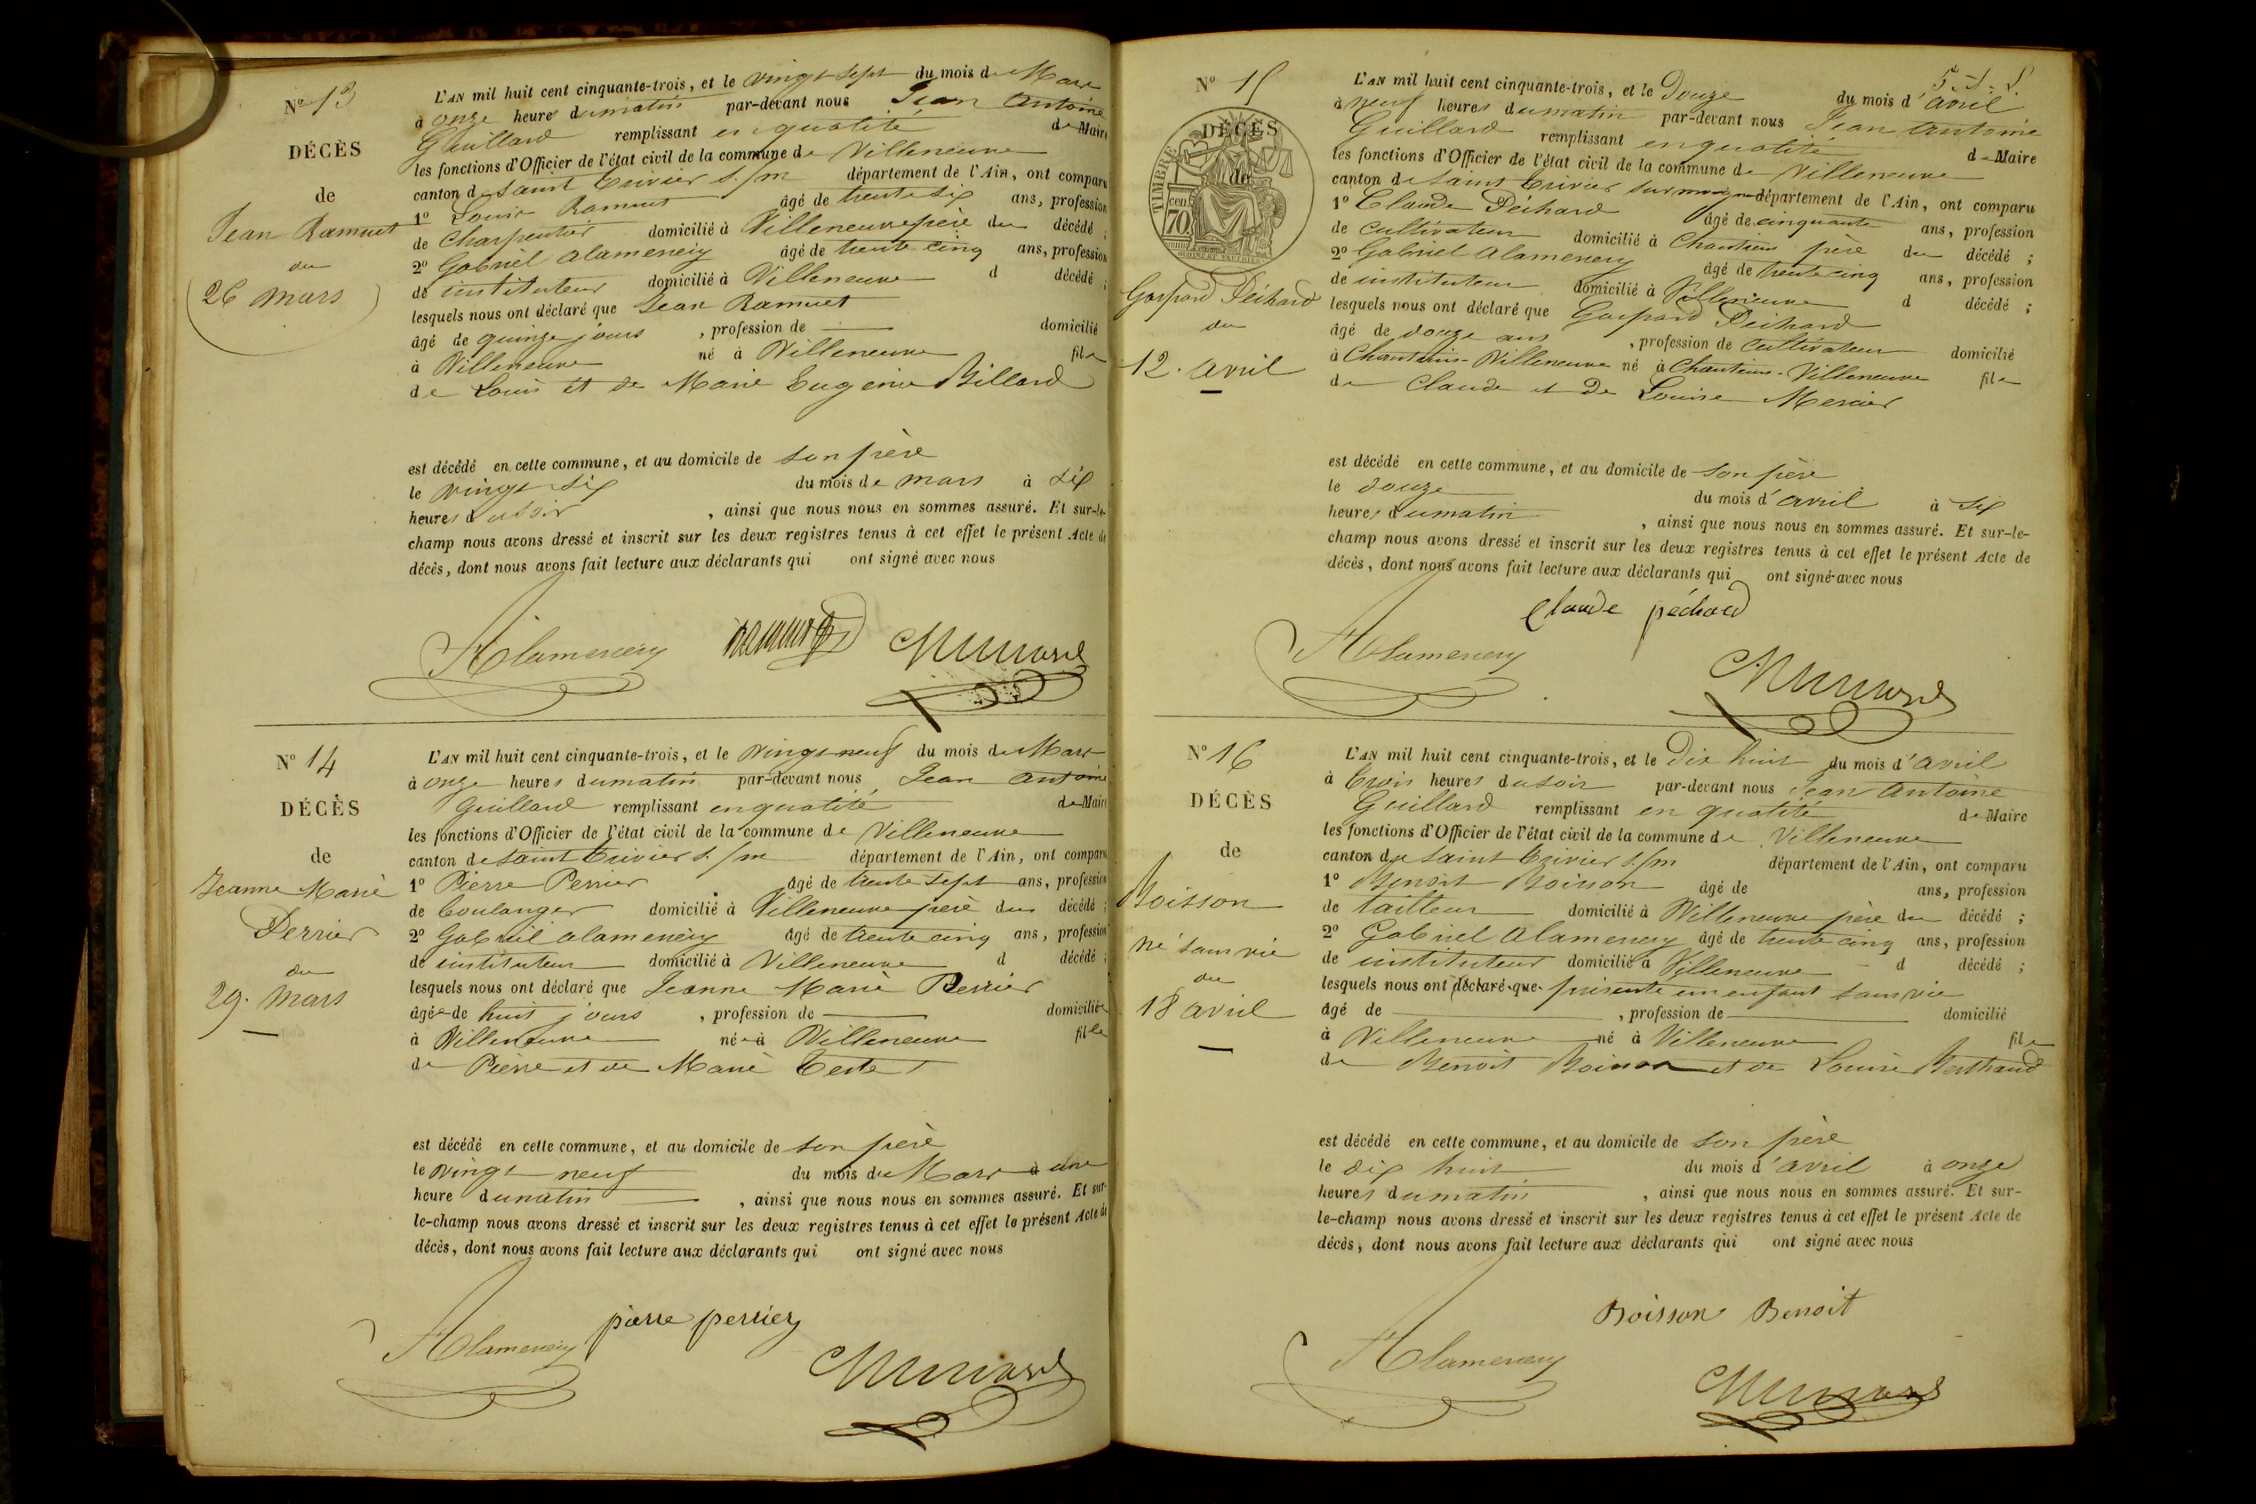 N° 13
DÉCÈS
de
Jean Ramuet
du
26 mars
L'AN mil huit cent cinquante-trois, et le vingt sept du mois de Mars
à onze heures du matin par-devant nous Jean Antoine
Guillard remplissant en qualité de Maire
les fonctions d'Officier de l'état civil de la commune de Villeneuve
canton de Saint Trivier s./m département de l'Ain, ont comparu
1° Louis Ramuet âgé de trente six ans, profession
de Charpentier domicilié à Villeneuve père du décédé ;
2° Gabriel Alamenery âgé de trente cinq ans, profession
de instituteur domicilié à Villeneuve d décédé ;
lesquels nous ont déclaré que Jean Ramuet
âgé de quinze jours , profession de domicilié
à Villeneuve né à Villeneuve fils
de Louis et de Marie Eugénie Billard
est décédé en cette commune, et au domicile de son père
le vingt six du mois de mars à six
heures du soir , ainsi que nous nous en sommes assuré. Et sur-le-
champ nous avons dressé et inscrit sur les deux registres tenus à cet effet le présent Acte de
décès, dont nous avons fait lecture aux déclarants qui ont signé avec nous
Alamenery
N° 14
DÉCÈS
de
Jeanne Marie
Perrier
du
29. mars
L'AN mil huit cent cinquante-trois, et le vingt neuf du mois de Mars
à onze heures du matin par-devant nous Jean Antoine
Guillard remplissant en qualité de Maire
les fonctions d'Officier de l'état civil de la commune de Villeneuve
canton de Saint Trivier s./m département de l'Ain, ont comparu
1° Pierre Perrier âgé de trente sept ans, profession
de boulanger domicilié à Villeneuve père du décédé ;
2° Gabriel Alamenery âgé de trente cinq ans, profession
de instituteur domicilié à Villeneuve d décédé ;
lesquels nous ont déclaré que Jeanne Marie Perrier
âgée de huit jours , profession de domiciliée
à Villeneuve née à Villeneuve fille
de Pierre et de Marie
est décédé en cette commune, et au domicile de son père
le vingt neuf du mois de Mars à une
heure du matin , ainsi que nous nous en sommes assuré. Et sur-
le-champ nous avons dressé et inscrit sur les deux registres tenus à cet effet le présent Acte de
décès, dont nous avons fait lecture aux déclarants qui ont signé avec nous
pierre perrier
Alamenery
N° 15
DÉCÈS
de
TIMBRE
70
Gaspard Péchard
du
12. avril
L'AN mil huit cent cinquante-trois, et le Douze du mois d'avril
à neuf heures du matin par-devant nous Jean Antoine
Guillard remplissant en qualité de Maire
les fonctions d'Officier de l'état civil de la commune de Villeneuve
canton de Saint Trivier sur moignans département de l'Ain, ont comparu
1° Claude Péchard âgé de cinquante ans, profession
de cultivateur domicilié à Chanteins père du décédé ;
2° Gabriel Alamenery âgé de trente cinq ans, profession
de instituteur domicilié à Villeneuve d décédé ;
lesquels nous ont déclaré que Gaspard Péchard
âgé de douze ans , profession de cultivateur domicilié
à Chanteins-Villeneuve né à Chanteins-Villeneuve fils
de Claude et de Louise Mercier
est décédé en cette commune, et au domicile de son père
le douze du mois d'avril à six
heures du matin , ainsi que nous nous en sommes assuré. Et sur-le-
champ nous avons dressé et inscrit sur les deux registres tenus à cet effet le présent Acte de
décès, dont nous avons fait lecture aux déclarants qui ont signé avec nous
Claude péchard
Alamenery
N° 16
DÉCÈS
de
Boisson
né sans vie
du
18 avril
L'AN mil huit cent cinquante-trois, et le Dix huit du mois d'avril
à trois heures du soir par-devant nous Jean Antoine
Guillard remplissant en qualité de Maire
les fonctions d'Officier de l'état civil de la commune de Villeneuve
canton de Saint Trivier s./m département de l'Ain, ont comparu
1° Benoit Boisson âgé de ans, profession
de tailleur domicilié à Villeneuve père du décédé ;
2° Gabriel Alamenery âgé de trente cinq ans, profession
de instituteur domicilié à Villeneuve d décédé ;
lesquels nous ont déclaré que présente un enfant sans vie
âgé de , profession de domicilié
à Villeneuve né à Villeneuve fils
de Benoit Boisson et de Louise Berthaud
est décédé en cette commune, et au domicile de son père
le dix huit du mois d'avril à onze
heures du matin , ainsi que nous nous en sommes assuré. Et sur-
le-champ nous avons dressé et inscrit sur les deux registres tenus à cet effet le présent Acte de
décès, dont nous avons fait lecture aux déclarants qui ont signé avec nous
Boisson Benoit
Alamenery